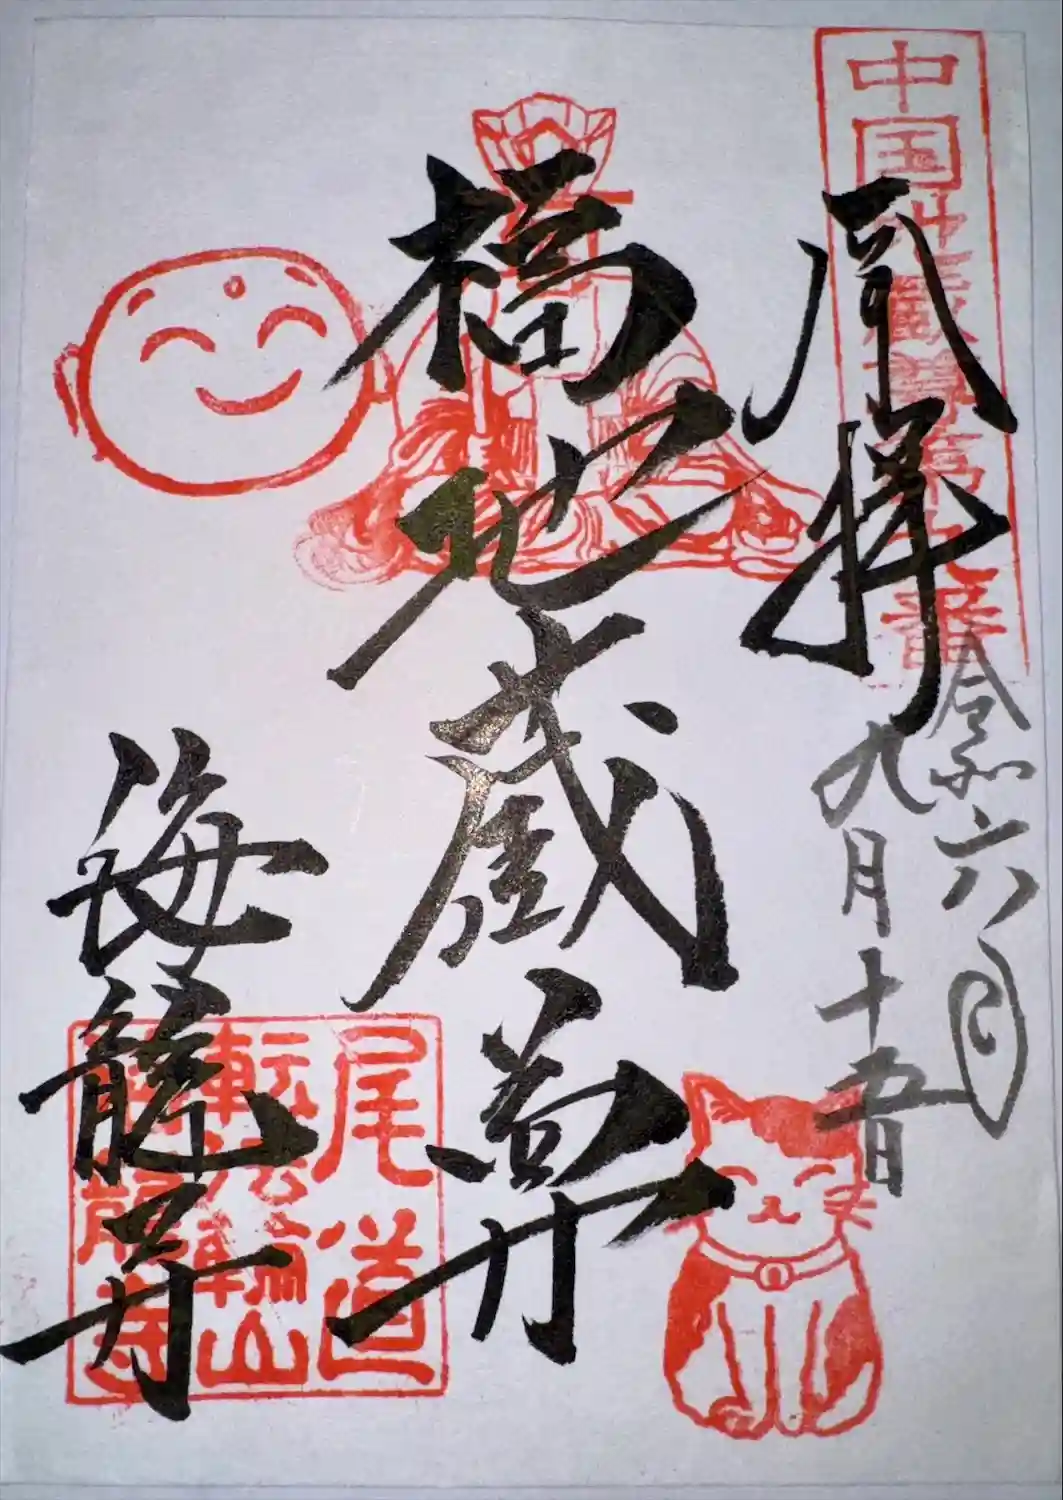 中国地蔵尊第
番
拝
令和六年
九月十五日
橋地蔵尊
海龍寺
尾道
転法輪山
海龍寺